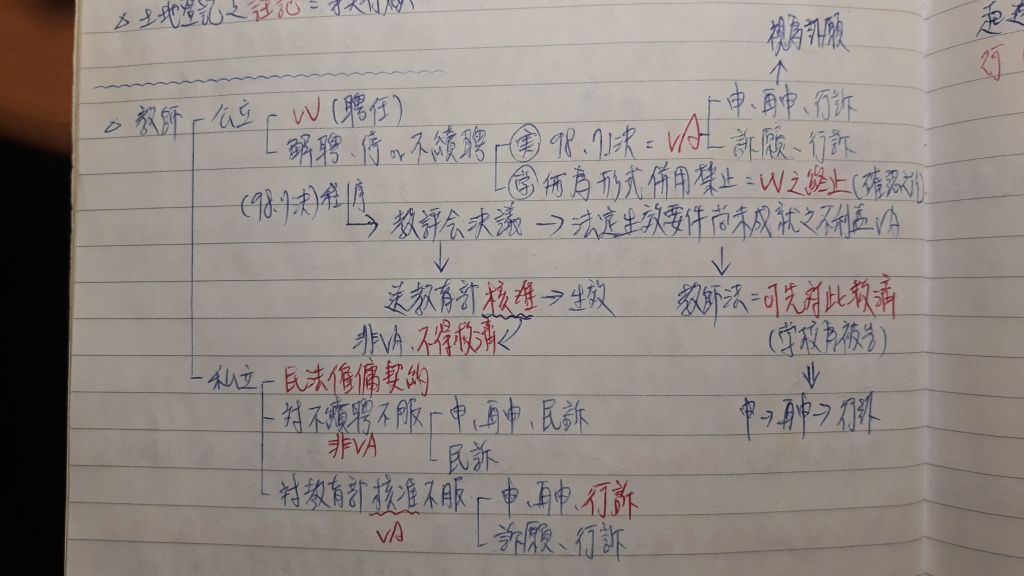 土地登記之註記=
視為訴願
教師 公立 W(聘任) 申、再申、行訴
解聘、停or不續聘 實 98.7決=VA 訴願、行訴
學 何為形式併用禁止=W之終止(確認
(98.7決)程序
教評会決議→法定生效要件尚未成就之不利益VA
送教育部核准→生效 教師法=可先对此救濟
非VA.不得救濟 (学校為被告)
私立 民法僱傭契約
对不續聘不服 申、再申、民訴 申→再申→行訴
非VA 民訴
对教育部核准不服 申、再申、行訴
VA 訴願、行訴
行